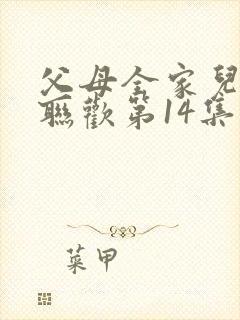 父母全家兒
聯歡第14集
菜甲